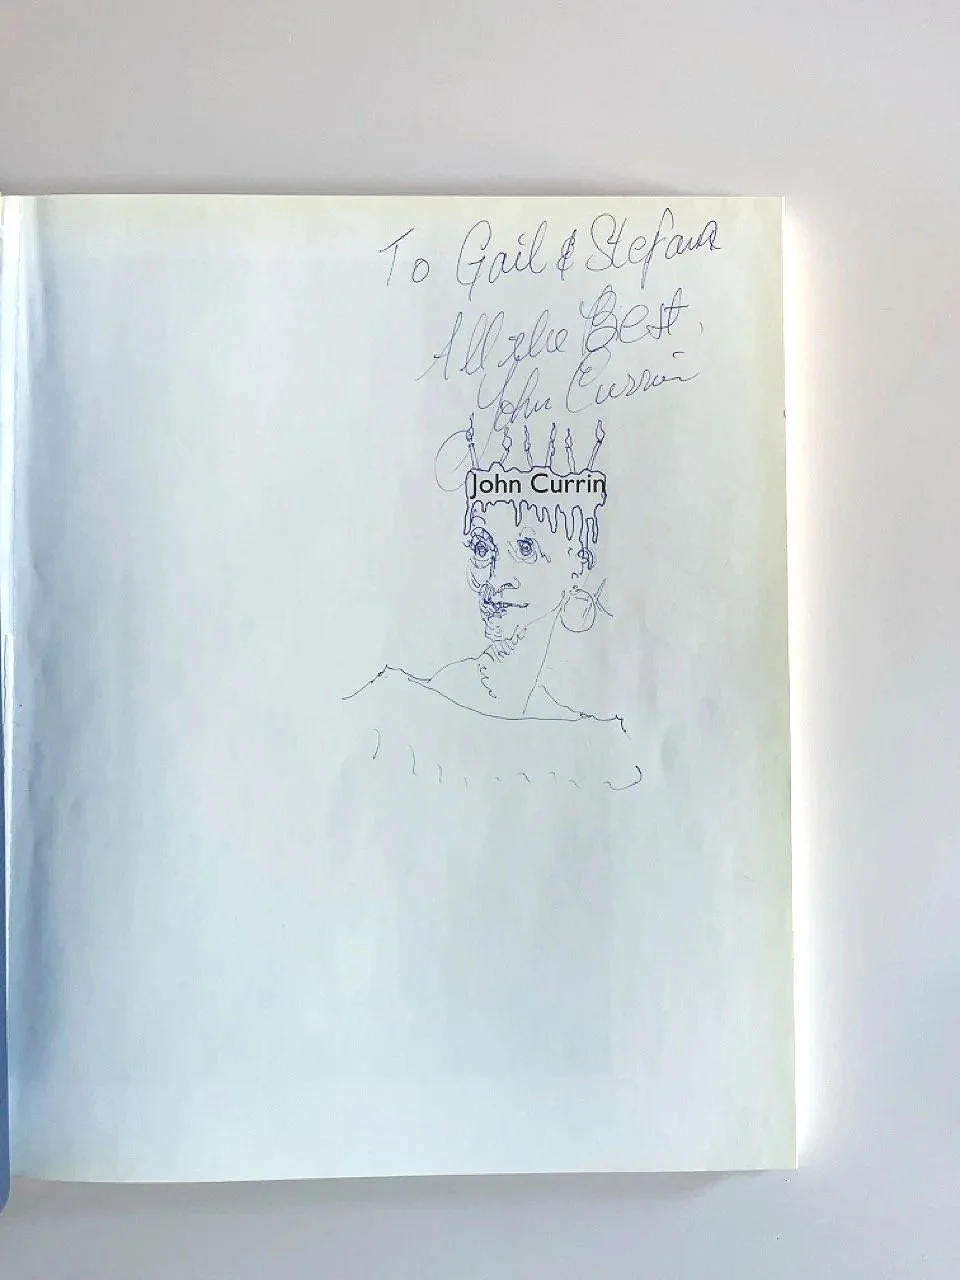 To Gail & Stefana
All the Best,
John Currin
John Currin